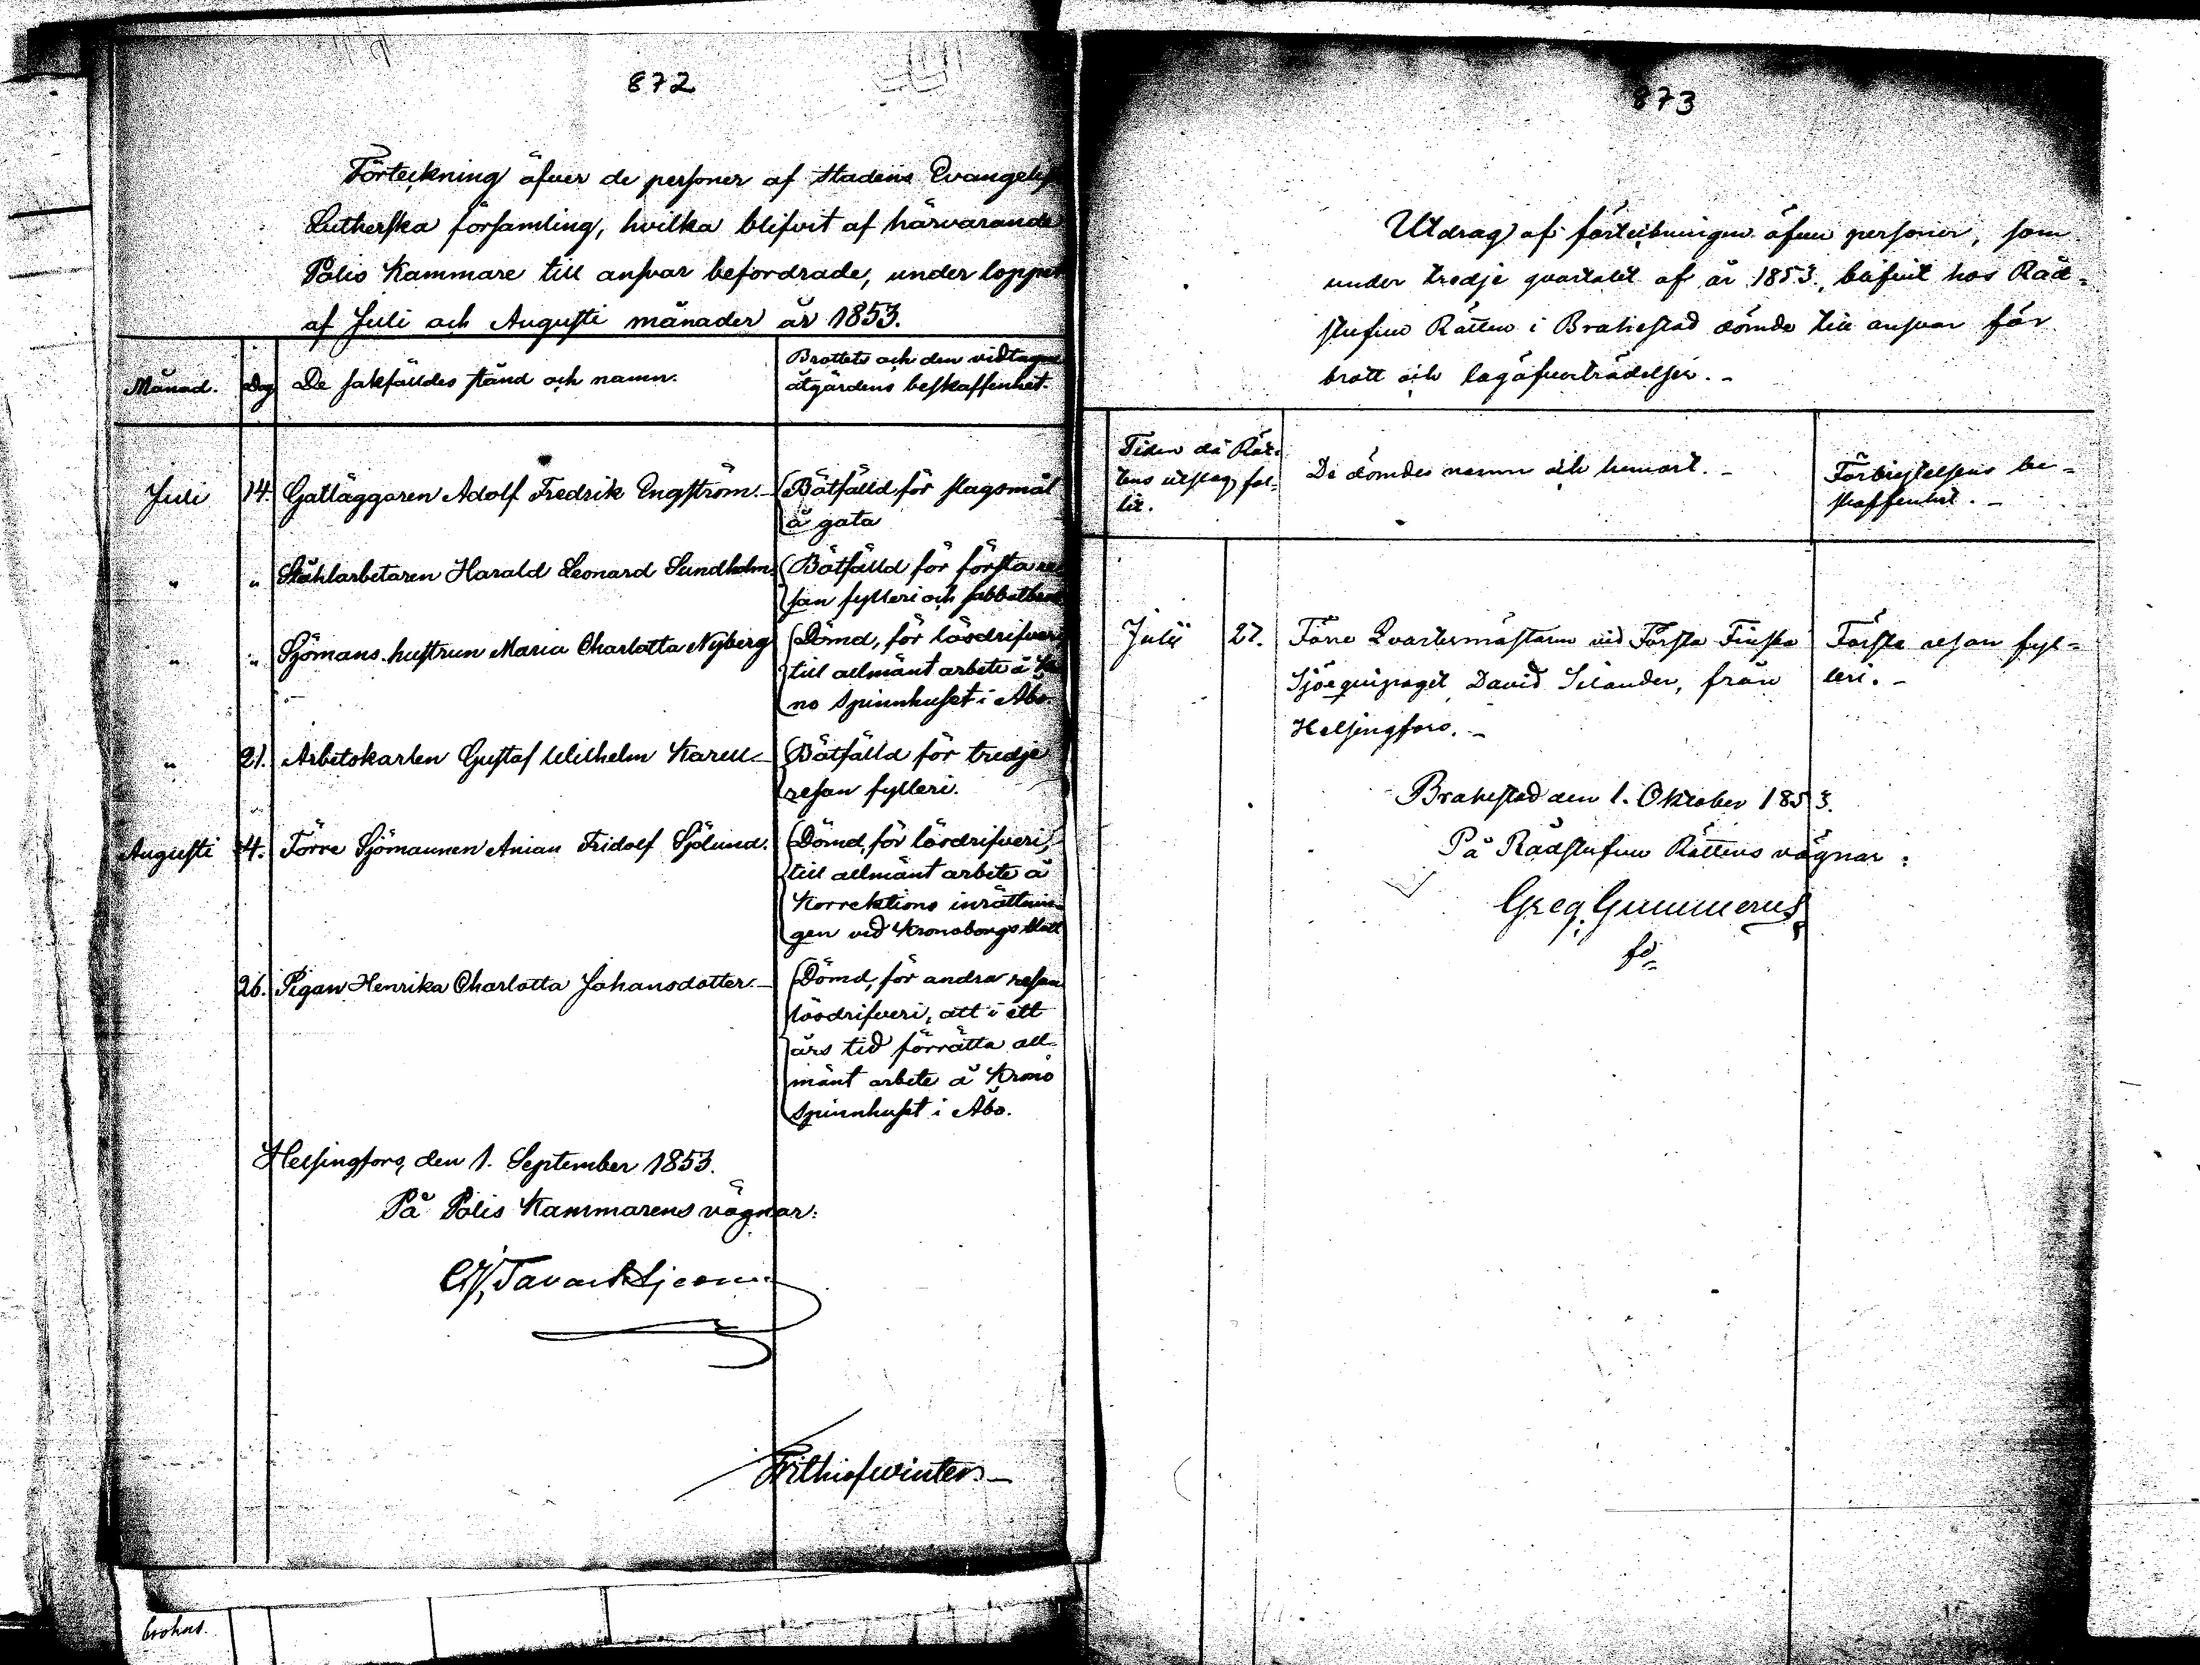 872
Förteckning öfver de personer af stadens Evangelisk
Lutherska församling, hvilka blifvit af härvarande
Polis Kammare till ansvar befordrade, under loppet
af Juli och Augusti månader år 1853.
Månad. Dag De sakfälldes stånd och namn. Brottets och den vidtagne
åtgärdens beskaffenhet.
Juli 14. Gatläggaren Adolf Fredrik Engström. Bötfälld för slagsmål
å gata
" " Ståhlarbetaren Harald Leonard Sundholm. Bötfälld för första re
san fylleri och sabbatbrott
" " Sjömans hustrun Maria Charlotta Nyberg Dömd, för lösdrifveri
till allmänt arbete å Kro
no spinnhuset i Åbo.
" 21. Arbetskarlen Gustaf Wilhelm Karell Bötfälld för tredje
resan fylleri.
Augusti 4. Förre Sjömannen Anian Fridolf Sjölund. Dömd, för lösdrifveri,
till allmänt arbete å
Korrektions inrättnin-
gen vid Kronoborgs slott
26. Pigan Henrika Charlotta Johansdotter. Dömd, för andra resan
lösdrifveri, att i ett
års tid förrätta all-
mänt arbete å Krono
spinnhuset i Åbo.
Helsingfors, den 1. September 1853.
På Polis Kammarens vägnar:
Frithiof Winter
873
Utdrag af förteckningen öfver personer, som
under tredje quartalet af år 1853, blifvit hos Råd-
stufvu Rätten i Brahestad dömde till ansvar för
brott och lagöfverträdelser.
Tiden då Rät-
tens utslag fal-
lit.
De dömdes namn och hemort.
Förbrytelsens be-
skaffenhet.
Julii 27. Förre Qvartermästaren vid Första Finska Första resan fyl-
Sjöequipaget David Silander, från leri.
Helsingfors.
Brahestad den 1. Oktober 1853.
På Rådstufvu Rättens vägnar:
Greg. Gummerus